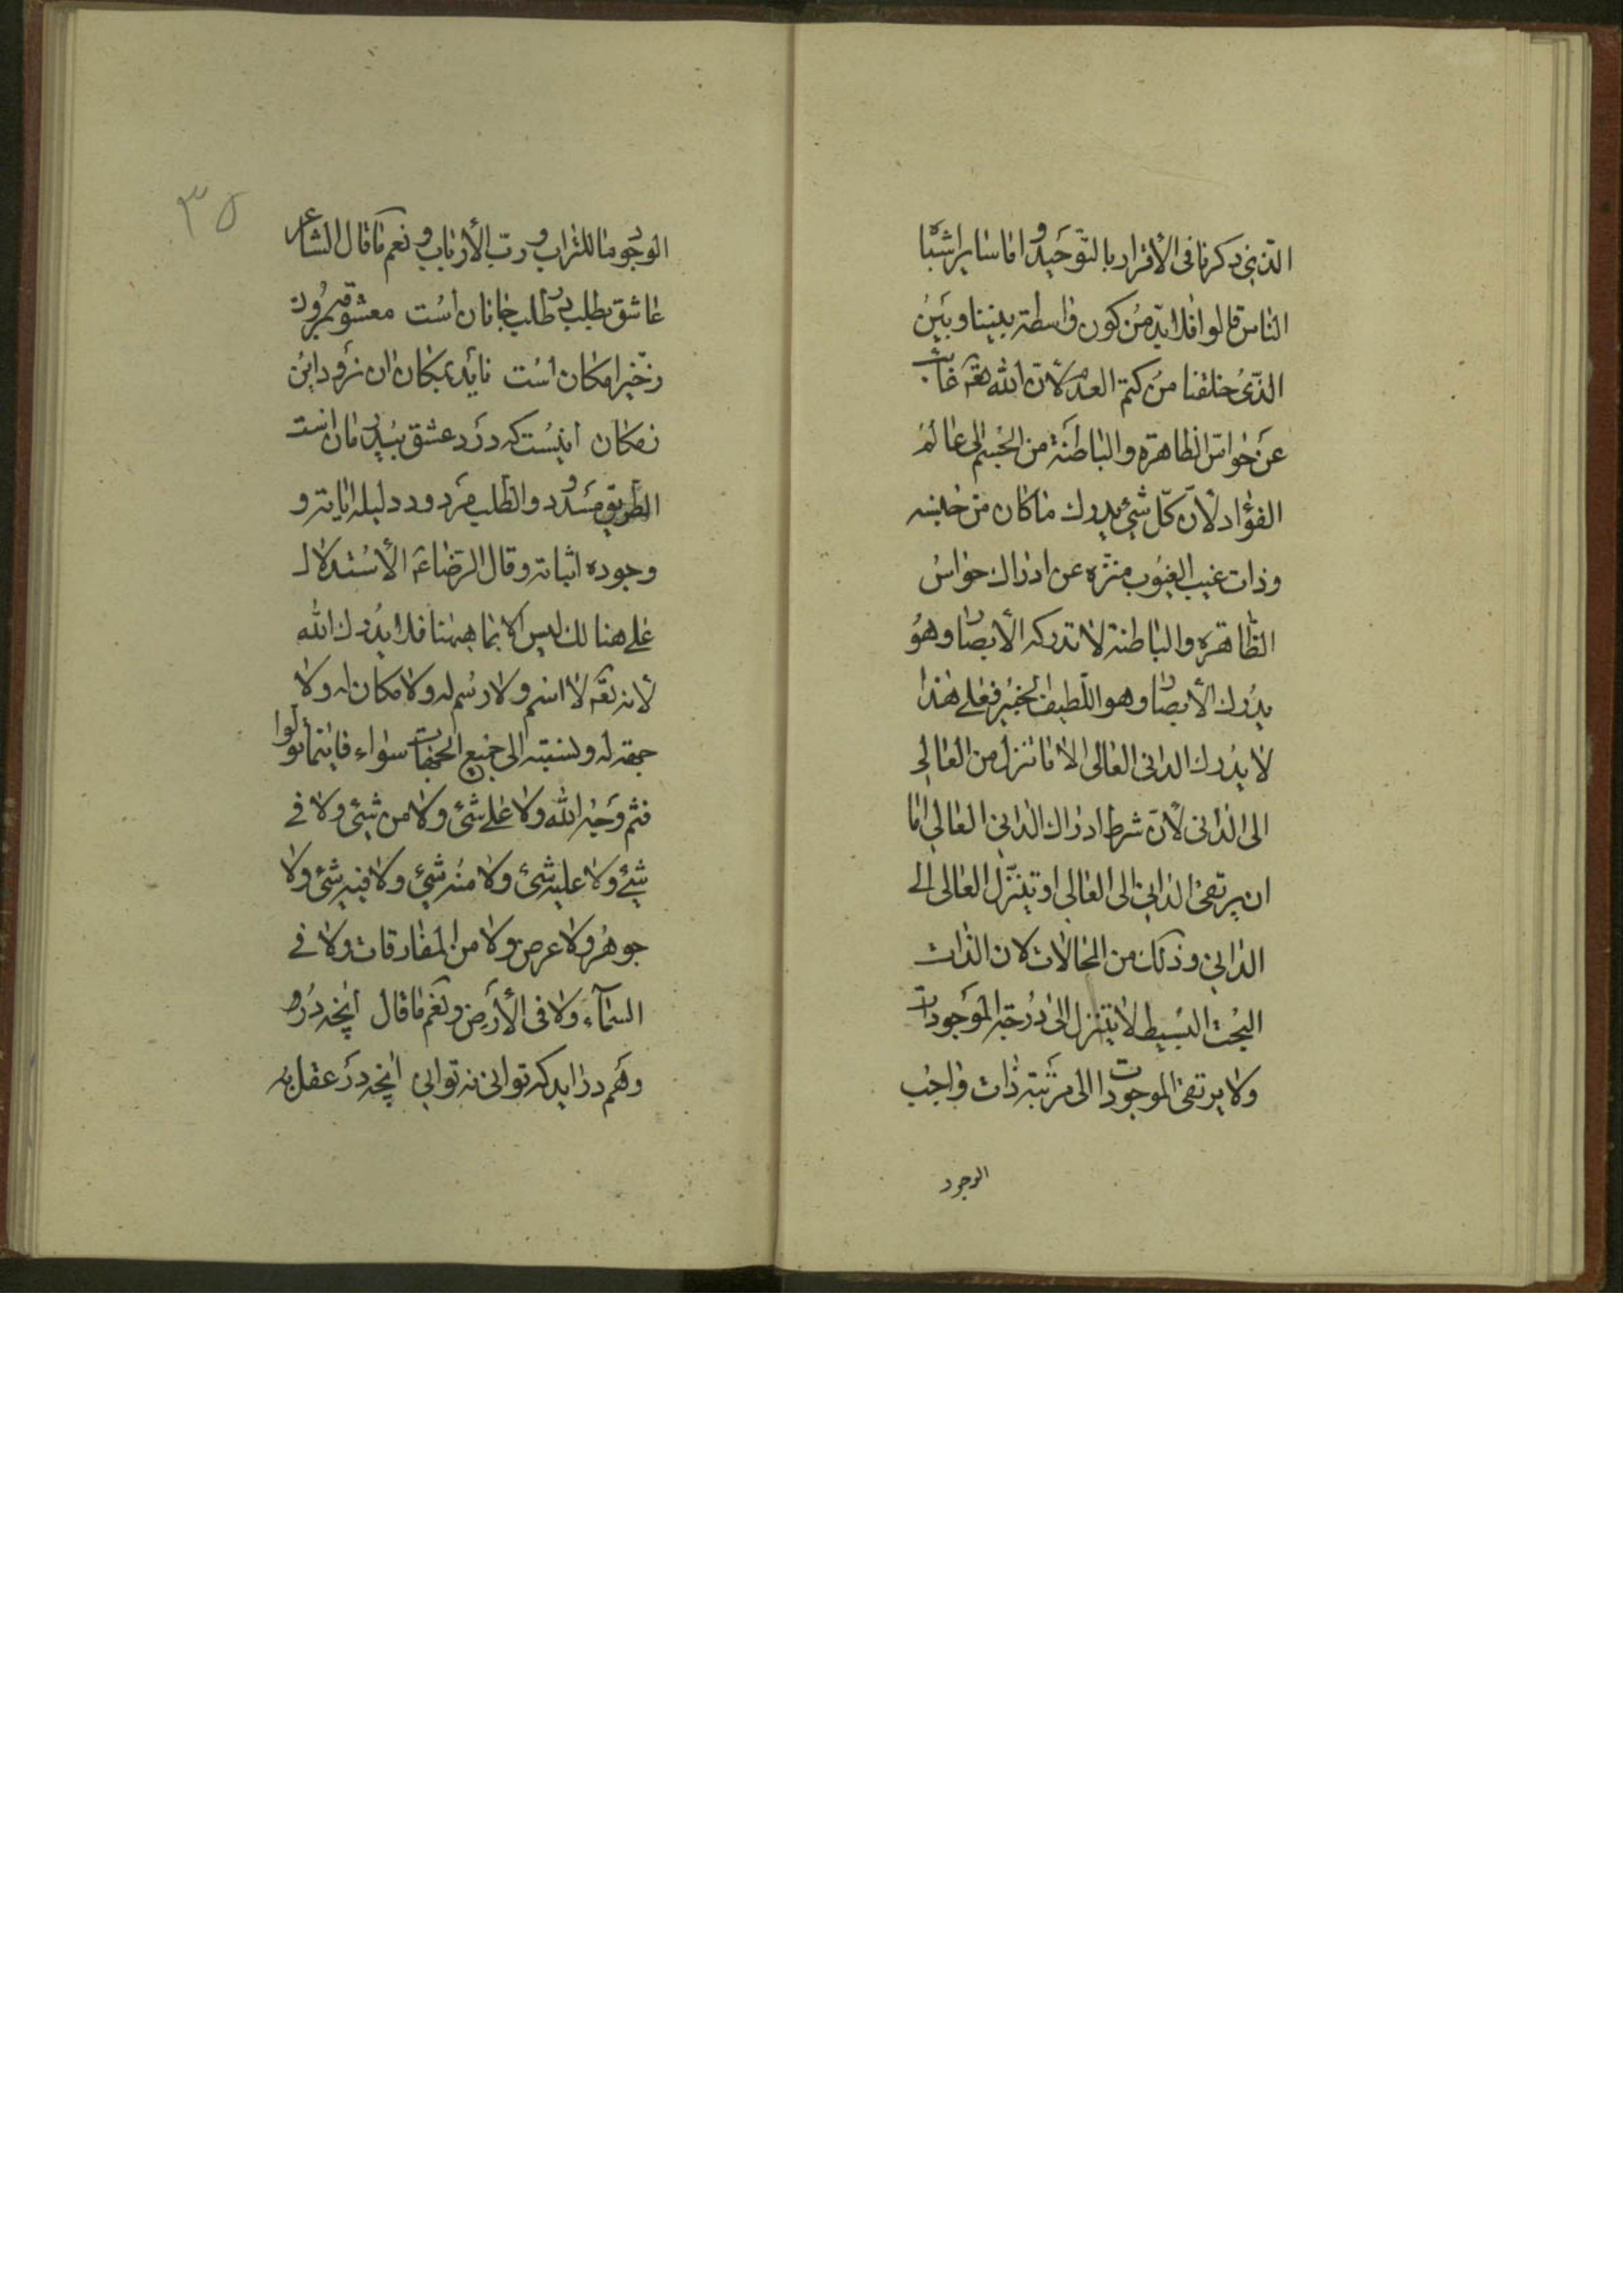 الذی ذكرنا فی الأقرار بالتّوحید و اما سایر اشباه
الناس قالوا فلا بدّ من كون واسطة بیننا و بین
الذّی خلقنا من كتم العدم لأنّ اللّه تعه غائب
عن حواس الظاهرة والباطنة من الجسم الی عالم
الفؤاد لأنّ كلّ شیء یدرك ما كان من جنسه
و ذات غیب الغیوب منزه عن ادراك حواس
الظّاهرة والباطنة لا تدركه الأبصار و هو
یدرك الأبصار و هو اللّطیف الخبیر فعلی هذا
لا یدرك الدانی العالی الا ما تنزل من العالی
الی الدانی لأنّ شرط ادراك الدانی العالی امّا
ان یرتقی الدانی الی العالی او یتنزّل العالی الی
الدانی و ذلك من المحالات لان الذات
البحت البسیط لا یتنزل الی درجة الموجودات
ولا یرتقی الموجودات الی مرتبة ذات واجب
الوجود
٣٥
الوجود ما للتراب و ربّ الأرباب و نعم ما قال الشاعر
عاشق بطلب در طلب جانان است معشوقه برون
زخیر امكان است ناید بمكان ان نرود این
زمكان اینست كه درد عشق بیدرمان است
الطریق مسدود والطلب مردود دلیله ایاته و
وجوده اثباته و قال الرضا عه الأستدلال
علی هنالك لیس الا بما هیهنا فلا یدرك اللّه
لأنه تعه لا اسم و لا رسم له و لا مكان له و لا
جهة له و نسبته الی جمیع الجهات سواء فاینما تولوا
فثم وجه اللّه و لا علی شیء و لا من شیء و لا فی
شیء و لا علیه شیء و لا منه شیء و لا فیه شیء و لا
جوهر و لا عرض و لا من المفارقات و لا فی
السّمآء و لا فی الأرض و نعم ما قال انچه در
وهم در اید كه توانی نه توانی انچه در عقل به